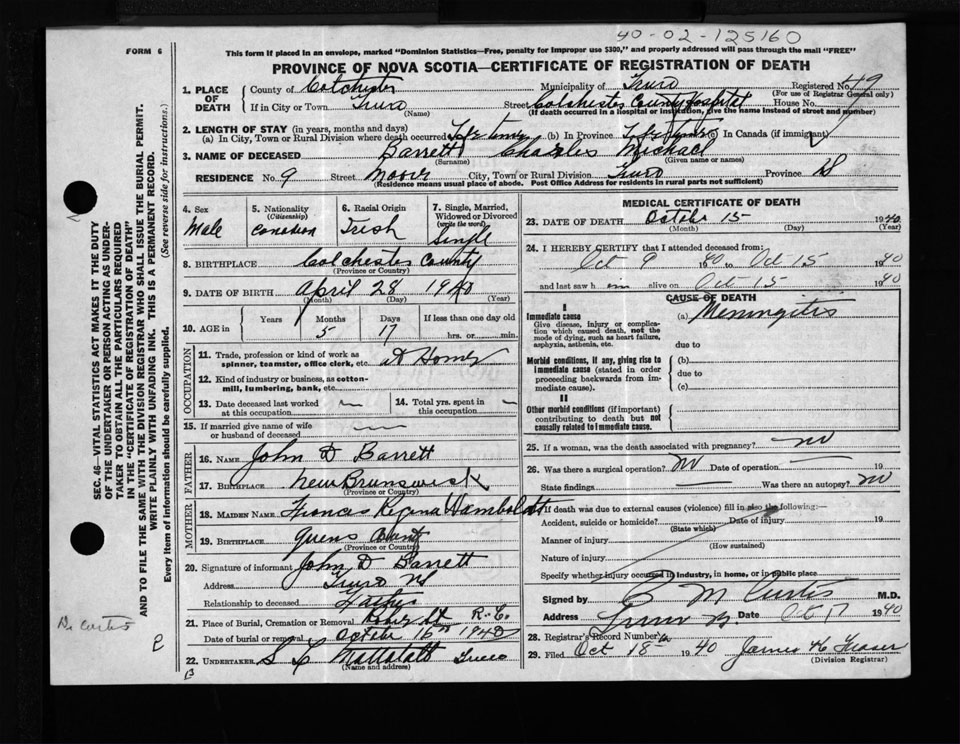 40-02-125160
FORM 6
This form if placed in an envelope, marked "Dominion Statistics—Free, penalty for improper use $300," and properly addressed will pass through the mail "FREE"
PROVINCE OF NOVA SCOTIA—CERTIFICATE OF REGISTRATION OF DEATH
SEC. 46—VITAL STATISTICS ACT MAKES IT THE DUTY
OF THE UNDERTAKER OR PERSON ACTING AS UNDER-
TAKER TO OBTAIN ALL THE PARTICULARS REQUIRED
IN THE "CERTIFICATE OF REGISTRATION OF DEATH"
AND TO FILE THE SAME WITH THE DIVISION REGISTRAR WHO SHALL ISSUE THE BURIAL PERMIT.
WRITE PLAINLY WITH UNFADING INK. THIS IS A PERMANENT RECORD.
Every item of information should be carefully supplied. (See reverse side for instructions.)
1. PLACE OF DEATH County of Colchester Municipality of Truro Registered No. 49
(For use of Registrar General only)
If in City or Town Truro Street Colchester County Hospital House No.
(Name) (If death occurred in a hospital or institution, give the name instead of street and number)
2. LENGTH OF STAY (in years, months and days)
(a) In City, Town or Rural Division where death occurred Life time (b) In Province Life time (c) In Canada (if immigrant)
3. NAME OF DECEASED Barrett Charles Michael
(Surname) (Given name or names)
RESIDENCE No. 9 Street Moore City, Town or Rural Division Truro Province NS
(Residence means usual place of abode. Post Office Address for residents in rural parts not sufficient)
4. Sex Male
5. Nationality (Citizenship) Canadian
6. Racial Origin Irish
7. Single, Married, Widowed or Divorced (write the word) Single
8. BIRTHPLACE Colchester County
(Province or Country)
9. DATE OF BIRTH April 28 1940
(Month) (Day) (Year)
10. AGE in Years Months 5 Days 17 If less than one day old
hrs. or min.
OCCUPATION
11. Trade, profession or kind of work as spinner, teamster, office clerk, etc. At Home
12. Kind of industry or business, as cotton-mill, lumbering, bank, etc.
13. Date deceased last worked at this occupation
14. Total yrs. spent in this occupation
15. If married give name of wife or husband of deceased
FATHER
16. NAME John D Barrett
17. BIRTHPLACE New Brunswick
(Province or Country)
MOTHER
18. MAIDEN NAME Frances Regina Hamboldt
19. BIRTHPLACE Quens County
(Province or Country)
20. Signature of informant John D Barrett
Address Truro NS
Relationship to deceased Father
21. Place of Burial, Cremation or Removal R.C.
Date of burial or removal October 16th 1940
22. UNDERTAKER Mattatall Truro
(Name and address)
MEDICAL CERTIFICATE OF DEATH
23. DATE OF DEATH October 15 1940
(Month) (Day) (Year)
24. I HEREBY CERTIFY that I attended deceased from:
Oct 9 1940 to Oct 15 1940
and last saw him alive on Oct 15 1940
CAUSE OF DEATH
I
Immediate cause (a) Meningitis
Give disease, injury or complication which caused death, not the mode of dying, such as heart failure, asphyxia, asthenia, etc.
due to
Morbid conditions, if any, giving rise to immediate cause (stated in order proceeding backwards from immediate cause). (b)
due to
(c)
II
Other morbid conditions (if important) contributing to death but not causally related to immediate cause.
25. If a woman, was the death associated with pregnancy? no
26. Was there a surgical operation? no Date of operation 19
State findings Was there an autopsy? no
27. If death was due to external causes (violence) fill in also the following:—
Accident, suicide or homicide? Date of injury 19
(State which)
Manner of injury
(How sustained)
Nature of injury
Specify whether injury occurred in industry, in home, or in public place
Signed by M Curtis M.D.
Address Truro Date Oct 17 1940
28. Registrar's Record Number
29. Filed Oct 18th 1940 James H Fraser
(Division Registrar)
Dr Curtis